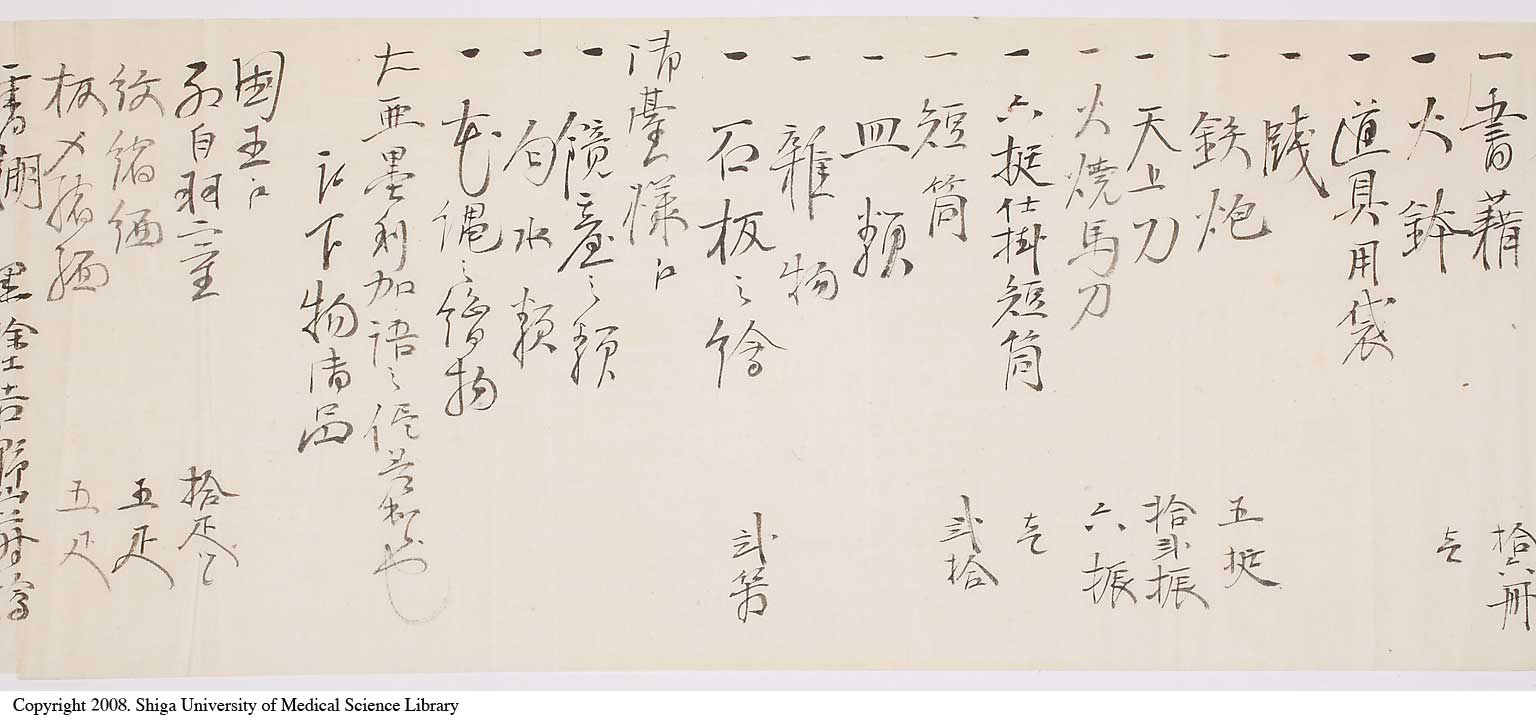 一 書藉 拾六冊
一 火鉢 壱
一 道具用袋
一 賎
一 鉄炮 五挺
一 天上刀 拾弐振
一 火焼馬刀 六振
一 六挺仕掛短筒 壱
一 短筒 弐拾
一 皿類
一 雑物
一 石板之絵 弐
御臺様江
一 鏡臺之類
一 匂水類
一 花縄之織物
大亜墨利加語之
被下物御品
国王江
紅白羽二重 拾疋ツヽ
紋縮緬 五疋
板〆縮緬 五疋
書棚 黒塗吉野山蒔繪
Copyright 2008. Shiga University of Medical Science Library